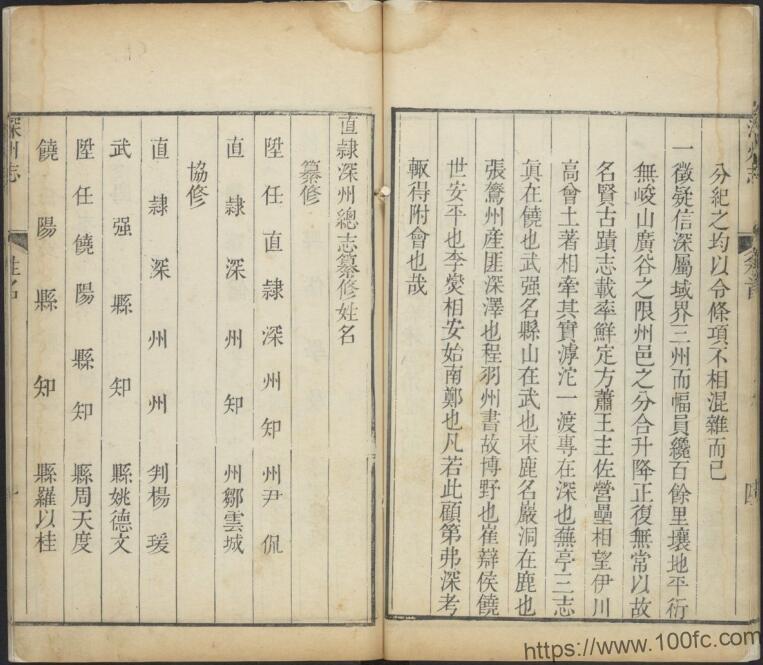 分紀之均以令條項不相混雜而已
一徵疑信深屬域界三州而幅員纔百餘里壤地平衍
無峻山廣谷之限州邑之分合升降正復無常以故
名賢古蹟志載率鮮定方蕭王主佐營壘相望伊川
高曾土著相牽其實滹沱一渡專在深也蕪亭三志
真在饒也武强名縣山在武也束鹿名巖洞在鹿也
張鷟州產匪深澤也程羽州書故博野也崔辯侯饒
世安平也李燮相安始南鄭也凡若此顧第弗深考
輒得附會也哉
直隸深州總志纂修姓名
纂修
陞任直隸深州知州尹侃
直隸深州知州鄒雲城
協修
直隸深州州判楊瑗
武强縣知縣姚德文
陞任饒陽縣知縣周天度
饒陽縣知縣羅以桂
深州志
姓名
https://www.100fc.com